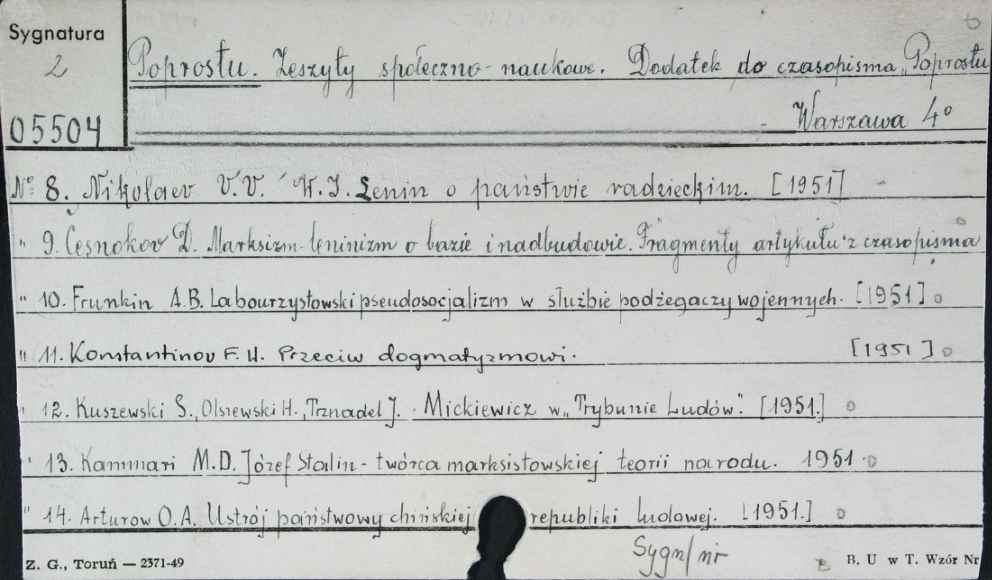 Sygnatura
2
05504
6
Poprostu. Zeszyty społeczno-naukowe. Dodatek do czasopisma „Poprostu
Warszawa 4°
N° 8. Nikolaev V.V. W.I. Lenin o państwie radzieckim. [1951]
" 9. Česnokov D. Marksizm-leninizm o bazie i nadbudowie. Fragmenty artykułu z czasopisma
" 10. Frumkin A.B. Labourzystowski pseudosocjalizm w służbie podżegaczy wojennych. [1951]
" 11. Konstantinov F. Przeciw dogmatyzmowi. [1951]
" 12. Kuszewski S., Olszewski H., Trznadel J. Mickiewicz w „Trybunie Ludów". [1951.]
" 13. Kammari M.D. Józef Stalin - twórca marksistowskiej teorii narodu. 1951
" 14. Arturow O.A. Ustrój państwowy chińskiej republiki ludowej. [1951.]
Sygn/nr
Z. G., Toruń — 2371-49
B. U w T. Wzór Nr